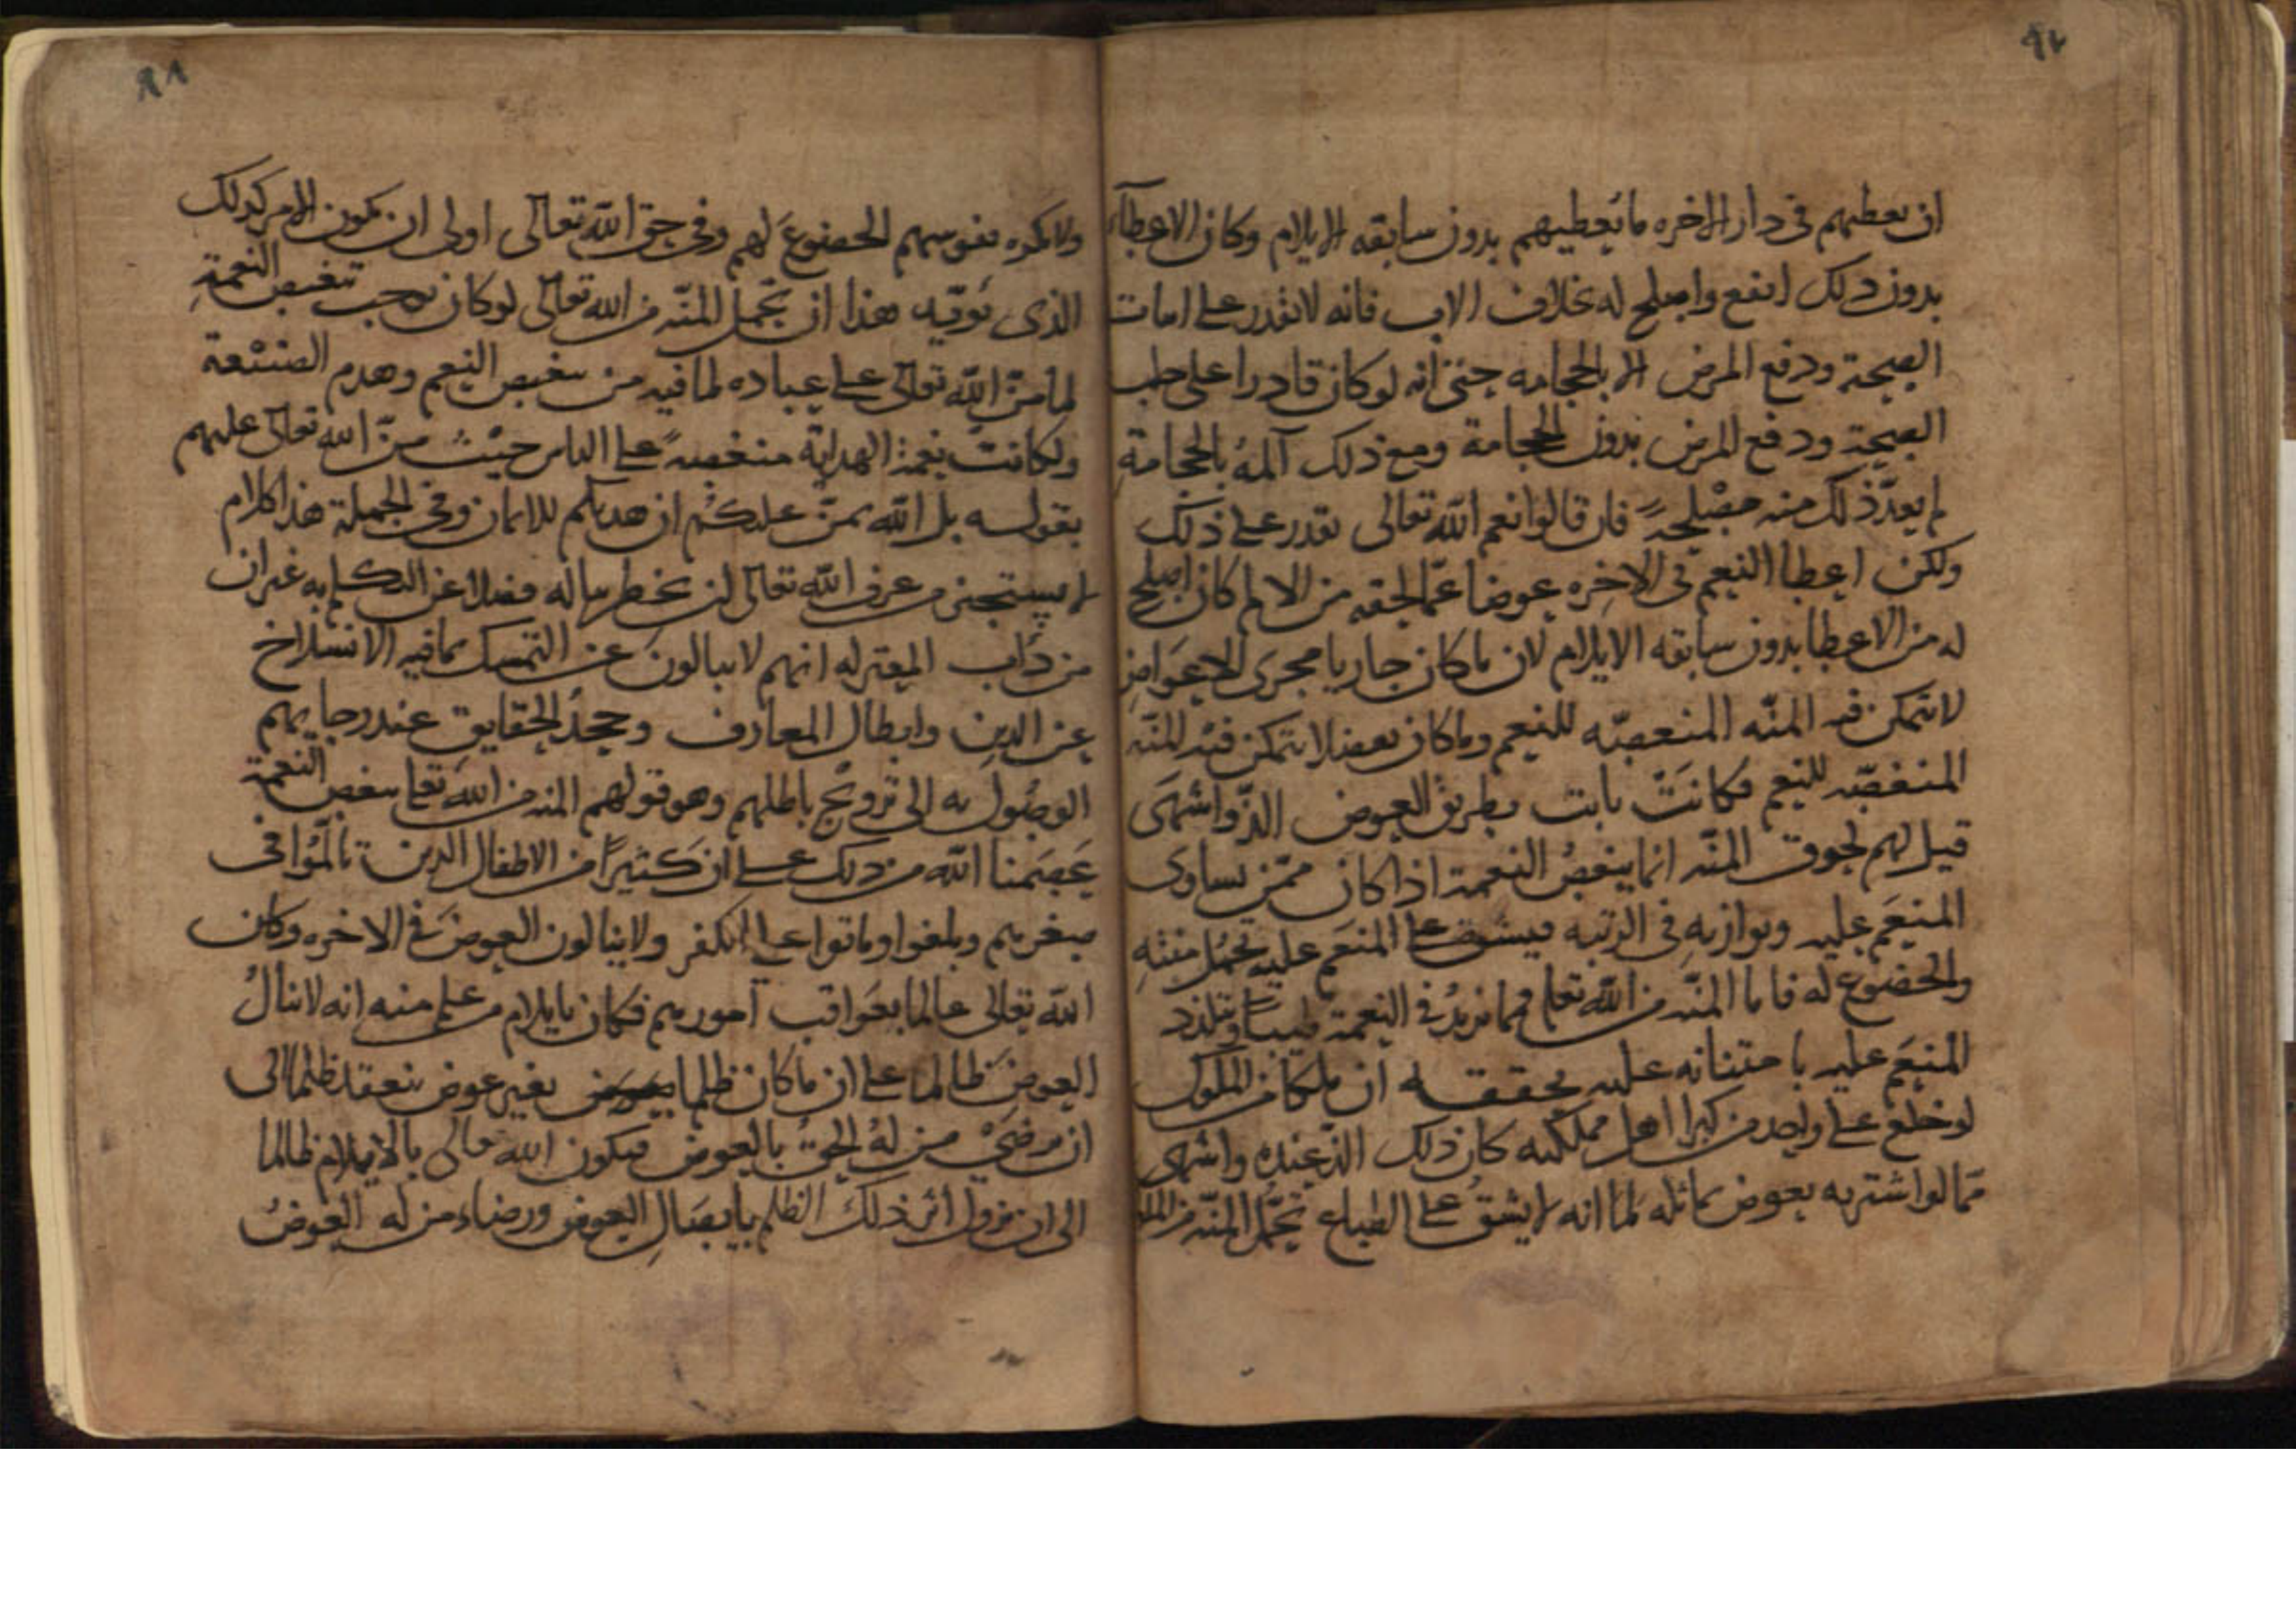 ان يعطيهم في دار الاخره ما يعطيهم بدون سابقه الايلام وكان الاعطاء
بدون ذلك انفع واصلح له بخلاف الاب فانه لا يقدر على
الصحة ودفع المرض الا بالحجامه حتى انه لو كان قادرا على جلب
الصحة ودفع المرض بدون الحجامة ومع ذلك آلمه بالحجامة
لم يعد ذلك منه مصلحة فان قالوا نعم الله تعالى يقدر على ذلك
ولكن اعطا النعيم في الاخره عوضا عما لحقه من الالم كان اصلح
له من الاعطا بدون سابقه الايلام لان ما كان جاريا مجرى الاعواض
لا تتمكن فيه المنّه المنغصه للنعيم وما كان تفضلا يتمكن فيه المنّه
المنغصه للنعم فكانت بطريق العوض الذّ واشهى
قيل لهم لحوق المنّه انما ينغص النعمة اذا كان ممّن يساوى
المنعم عليه ويوازيه في الرتبه فيشق على المنعم عليه تحمل مننه
والخضوع له فاما المنّه من الله تعلى فمما يزيد في النعمة طيبا وتلذذ
المنعم عليه بامتنانه عليه يحققه ان ملكا من الملوك
لو خلع على واحد من كبرا اهل مملكته كان ذلك الذّ عنده واشهى
مما لو اشتريه بعوض يماثله لما انه لا يشق على الطباع تحمّل المنّه من
ولا تكره نفوسهم الخضوع لهم وفي حق الله تعالى اولى ان يكون الامر كذلك
الذى يؤيد هذا ان تحمل المنّه من الله تعالى لو كان يوجب تنغيص النعمة
لما منّ الله تعالى على عباده لما فيه من تنغيص النعيم وهدم الصنيعة
ولكانت نعمة الهداية منغصة على الناس حيث منّ الله تعالى عليهم
بقوله بل الله يمنّ عليكم ان هديكم للايمان وفي الجملة هذا كلام
لا يستجيز من عرف الله تعالى ان يخطر بباله فضلا عن التكلم به غير ان
من دأب المعتزله انهم لا يبالون عن التمسك بما فيه الانسلاخ
عن الدين وابطال المعارف وجحد الحقايق عند رجايهم
الوصول به الى ترويج باطلهم وهو قولهم المنه من الله تعلى تنغص النعمة
عصمنا الله من ذلك على ان كثيرا من الاطفال الذين تالموا في
صغرهم وبلغوا وماتوا على الكفر ولا ينالون العوض في الاخره وكان
الله تعالى عالما بعواقب امورهم فكان بايلام من علم منه انه لا ينال
العوض ظالما على ان ما كان ظلما بغير عوض ينعقد ظلما الى
ان يرضى من له الحق بالعوض فيكون الله تعالى بالايلام ظالما
الى ان يزول اثر ذلك الظلم بايصال العوض ورضاء من له العوض